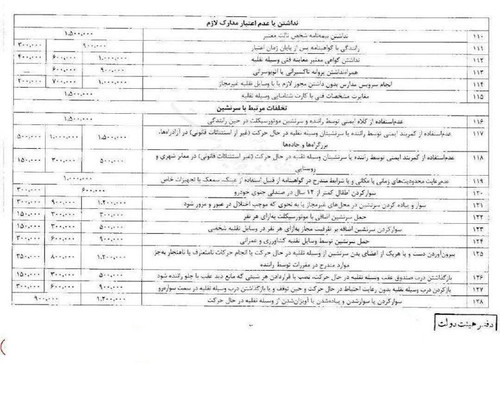 نداشتن یا عدم اعتبار مدارک لازم
۱۱۰ نداشتن بیمه‌نامه شخص ثالث معتبر ۱,۵۰۰,۰۰۰
۱۱۱ رانندگی با گواهینامه پس از پایان زمان اعتبار ۹۰۰,۰۰۰ ۳۰۰,۰۰۰
۱۱۲ نداشتن گواهی معتبر معاینه فنی وسیله نقلیه ۱,۰۰۰,۰۰۰ ۶۰۰,۰۰۰ ۴۰۰,۰۰۰
۱۱۳ همراه‌نداشتن پروانه تاکسیرانی یا اتوبوسرانی ۶۰۰,۰۰۰
۱۱۴ انجام سرویس مدارس بدون داشتن مجوز لازم یا با وسایل نقلیه غیرمجاز ۱,۰۰۰,۰۰۰
۱۱۵ مغایرت مشخصات فنی با کارت شناسایی وسیله نقلیه ۱,۵۰۰,۰۰۰
تخلفات مرتبط با سرنشین
۱۱۶ عدم‌استفاده از کلاه ایمنی توسط راننده و سرنشین موتورسیکلت در حین رانندگی
۱۱۷ عدم‌استفاده از کمربند ایمنی توسط راننده یا سرنشینان وسیله نقلیه در حال حرکت (غیر از استثنائات قانونی) در آزادراه‌ها، ۱,۵۰۰,۰۰۰ ۱,۰۰۰,۰۰۰ ۵۰۰,۰۰۰
بزرگراه‌ها و جاده‌ها
۱۱۸ عدم‌استفاده از کمربند ایمنی توسط راننده یا سرنشینان وسیله نقلیه در حال حرکت (غیر از استثنائات قانونی) در معابر شهری و
روستایی
۱۱۹ عدم‌رعایت محدودیت‌های زمانی یا مکانی و یا شرایط مندرج در گواهینامه از قبیل استفاده از عینک، سمعک یا تجهیزات خاص
۱۲۰ سوارکردن اطفال کمتر از ۱۲ سال در صندلی جلوی خودرو ۶۰۰,۰۰۰
۱۲۱ سوار و پیاده کردن سرنشین در محل‌های غیرمجاز یا به نحوی که موجب اختلال در عبور و مرور شود ۱,۲۰۰,۰۰۰ ۹۰۰,۰۰۰
۱۲۲ حمل سرنشین اضافی با موتورسیکلت به‌ازای هر نفر ۵۰۰,۰۰۰ ۳۰۰,۰۰۰ ۱۵۰,۰۰۰
۱۲۳ سرنشین اضافه بر ظرفیت مجاز به‌ازای هر نفر در وسایل نقلیه شخصی
۱۲۴ حمل سرنشین توسط وسایل نقلیه کشاورزی و عمرانی
۱۲۵ بیرون‌آوردن دست و یا هریک از اعضای بدن سرنشین از وسیله نقلیه در حال حرکت یا انجام حرکات نامتعارف یا ناهنجار به‌جز
موارد مندرج در مقررات توسط راننده
۱۲۶ بازگذاشتن درب صندوق عقب وسیله نقلیه در حال حرکت، نصب یا قراردادن هر شیئی که مانع دید عقب یا جلو راننده شود ۵۰۰,۰۰۰ ۳۰۰,۰۰۰ ۱۵۰,۰۰۰
۱۲۷ بازکردن درب وسیله نقلیه بدون رعایت احتیاط در حال حرکت و حین توقف و یا بازگذاشتن درب وسیله نقلیه در سمت سواره‌رو
۱۲۸ سوارکردن یا سوارشدن و پیاده‌شدن یا آویزان‌شدن از وسیله نقلیه در حال حرکت ۱,۲۰۰,۰۰۰ ۹۰۰,۰۰۰
دفتر هیئت دولت